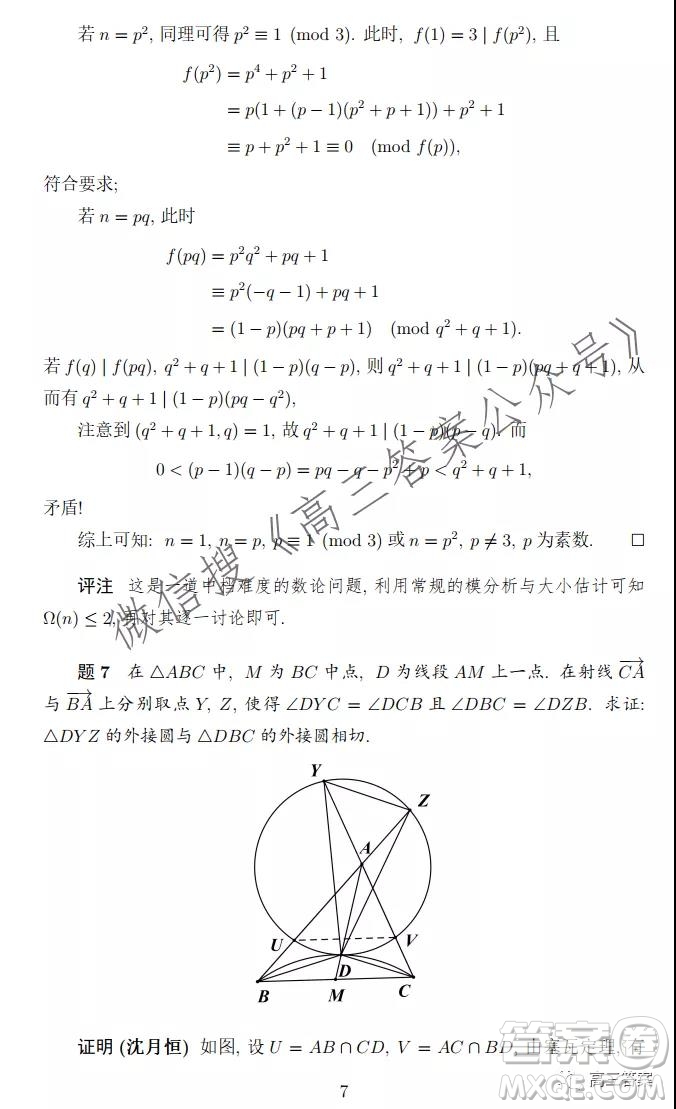 若 n = p², 同理可得 p² ≡ 1 (mod 3). 此时, f(1) = 3 | f(p²), 且
f(p²) = p⁴ + p² + 1
= p(1 + (p − 1)(p² + p + 1)) + p² + 1
≡ p + p² + 1 ≡ 0 (mod f(p)),
符合要求;
若 n = pq, 此时
f(pq) = p²q² + pq + 1
≡ p²(−q − 1) + pq + 1
= (1 − p)(pq + p + 1) (mod q² + q + 1).
若 f(q) | f(pq), q² + q + 1 | (1 − p)(q − p), 则 q² + q + 1 | (1 − p)(pq + q + 1), 从
而有 q² + q + 1 | (1 − p)(pq − q²),
注意到 (q² + q + 1, q) = 1, 故 q² + q + 1 | (1 − p)(p − q). 而
0 < (p − 1)(q − p) = pq − q − p² + p < q² + q + 1,
矛盾!
综上可知: n = 1, n = p, p ≡ 1 (mod 3) 或 n = p², p ≠ 3, p 为素数. □
评注 这是一道中档难度的数论问题, 利用常规的模分析与大小估计可知
Ω(n) ≤ 2, 再对其逐一讨论即可.
题 7 在 △ABC 中, M 为 BC 中点, D 为线段 AM 上一点. 在射线 CA
与 BA 上分别取点 Y, Z, 使得 ∠DYC = ∠DCB 且 ∠DBC = ∠DZB. 求证:
△DYZ 的外接圆与 △DBC 的外接圆相切.
Y
Z
A
U
V
D
B
M
C
证明 (沈月恒) 如图, 设 U = AB ∩ CD, V = AC ∩ BD, 由塞瓦定理, 有
7
微信搜《高三答案公众号》
高三答案
答案圈
MXQE.COM